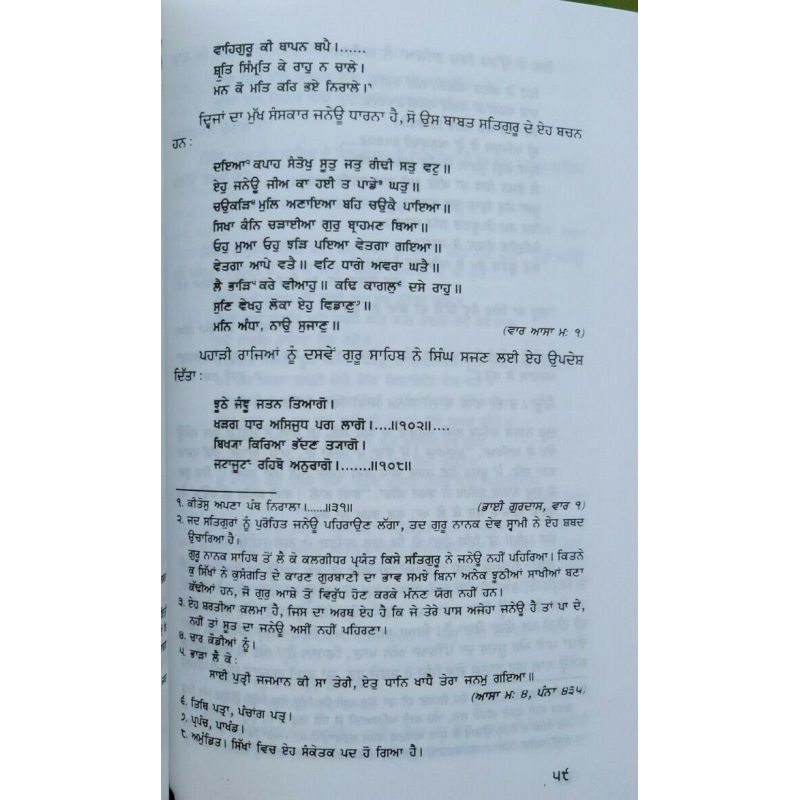 ਵਾਹਿਗੁਰੂ ਕੀ ਥਾਪਨ ਥਪੈ।......
ਸ੍ਰੁਤਿ ਸਿੰਮ੍ਰਤਿ ਕੇ ਰਾਹੁ ਨ ਚਾਲੇ।
ਮਨ ਕੋ ਮਤਿ ਕਰਿ ਭਏ ਨਿਰਾਲੇ।੧
ਦ੍ਵਿਜਾਂ ਦਾ ਮੁੱਖ ਸੰਸਕਾਰ ਜਨੇਊ ਧਾਰਨਾ ਹੈ, ਸੋ ਉਸ ਬਾਬਤ ਸਤਿਗੁਰੂ ਦੇ ਏਹ ਬਚਨ
ਹਨ :
ਦਇਆ੨ ਕਪਾਹ ਸੰਤੋਖੁ ਸੂਤੁ ਜਤੁ ਗੰਢੀ ਸਤੁ ਵਟੁ॥
ਏਹੁ ਜਨੇਊ ਜੀਅ ਕਾ ਹਈ ਤ ਪਾਡੇ੩ ਘਤੁ॥
ਚਉਕੜਿ੪ ਮੁਲਿ ਅਣਾਇਆ ਬਹਿ ਚਉਕੈ ਪਾਇਆ॥
ਸਿਖਾ ਕੰਨਿ ਚੜਾਈਆ ਗੁਰੁ ਬ੍ਰਾਹਮਣ ਥਿਆ॥
ਓਹੁ ਮੁਆ ਓਹੁ ਝੜਿ ਪਇਆ ਵੇਤਗਾ ਗਇਆ॥
ਵੇਤਗਾ ਆਪੇ ਵਤੈ॥ ਵਟਿ ਧਾਗੇ ਅਵਰਾ ਘਤੈ॥
ਲੈ ਭਾੜਿ੫ ਕਰੇ ਵੀਆਹੁ॥ ਕਢਿ ਕਾਗਲੁ੬ ਦਸੇ ਰਾਹੁ॥
ਸੁਣਿ ਵੇਖਹੁ ਲੋਕਾ ਏਹੁ ਵਿਡਾਣੁ੭॥
ਮਨਿ ਅੰਧਾ, ਨਾਉ ਸੁਜਾਣੁ॥ (ਵਾਰ ਆਸਾ ਮ: ੧)
ਪਹਾੜੀ ਰਾਜਿਆਂ ਨੂੰ ਦਸਵੇਂ ਗੁਰੂ ਸਾਹਿਬ ਨੇ ਸਿੰਘ ਸਜਣ ਲਈ ਏਹ ਉਪਦੇਸ਼
ਦਿੱਤਾ :
ਝੂਠੇ ਜੰਞੂ ਜਤਨ ਤਿਆਗੋ।
ਖੜਗ ਧਾਰ ਅਸਿਜੁਧ ਪਗ ਲਾਗੋ।....॥੧੦੨॥....
ਬਿਖ੍ਯਾ ਕਿਰਿਆ ਭੱਦਣ ਤ੍ਯਾਗੋ।
ਜਟਾਜੂਟ੮ ਰਹਿਬੋ ਅਨੁਰਾਗੋ।.......॥੧੦੮॥
੧. ਕੀਤੋਸੁ ਅਪਣਾ ਪੰਥ ਨਿਰਾਲਾ।......॥੩੧॥ (ਭਾਈ ਗੁਰਦਾਸ, ਵਾਰ ੧)
੨. ਜਦ ਸਤਿਗੁਰਾਂ ਨੂੰ ਪੁਰੋਹਿਤ ਜਨੇਊ ਪਹਿਰਾਉਣ ਲੱਗਾ, ਤਦ ਗੁਰੂ ਨਾਨਕ ਦੇਵ ਸ੍ਵਾਮੀ ਨੇ ਏਹ ਸ਼ਬਦ
ਉਚਾਰਿਆ ਹੈ।
ਗੁਰੂ ਨਾਨਕ ਸਾਹਿਬ ਤੋਂ ਲੈ ਕੇ ਕਲਗੀਧਰ ਪ੍ਰਯੰਤ ਕਿਸੇ ਸਤਿਗੁਰੂ ਨੇ ਜਨੇਊ ਨਹੀਂ ਪਹਿਰਿਆ। ਕਿਤਨੇ
ਕੁ ਸਿੱਖਾਂ ਨੇ ਕੁਸੰਗਤਿ ਦੇ ਕਾਰਣ ਗੁਰਬਾਣੀ ਦਾ ਭਾਵ ਸਮਝੇ ਬਿਨਾ ਅਨੇਕ ਝੂਠੀਆਂ ਸਾਖੀਆਂ ਬਣਾ
ਕੱਢੀਆਂ ਹਨ, ਜੋ ਗੁਰੂ ਆਸ਼ੇ ਤੋਂ ਵਿਰੁੱਧ ਹੋਣ ਕਰਕੇ ਮੰਨਣ ਯੋਗ ਨਹੀਂ ਹਨ।
੩. ਏਹ ਸ਼ਰਤੀਆ ਕਲਮਾ ਹੈ, ਜਿਸ ਦਾ ਅਰਥ ਏਹ ਹੈ ਕਿ ਜੇ ਤੇਰੇ ਪਾਸ ਅਜੇਹਾ ਜਨੇਊ ਹੈ ਤਾਂ ਪਾ ਦੇ,
ਨਹੀਂ ਤਾਂ ਸੂਤ ਦਾ ਜਨੇਊ ਅਸੀਂ ਨਹੀਂ ਪਹਿਰਣਾ।
੪. ਚਾਰ ਕੌਡੀਆਂ ਨੂੰ।
੫. ਭਾੜਾ ਲੈ ਕੇ :
ਸਾਈ ਪੁਤ੍ਰੀ ਜਜਮਾਨ ਕੀ ਸਾ ਤੇਰੀ, ਏਤੁ ਧਾਨਿ ਖਾਧੈ ਤੇਰਾ ਜਨਮੁ ਗਇਆ॥
(ਆਸਾ ਮ: ੪, ਪੰਨਾ ੪੩੫)
੬. ਤਿਥਿ ਪਤ੍ਰਾ, ਪੰਚਾਂਗ ਪਤ੍ਰ।
੭. ਪ੍ਰਪੰਚ, ਪਾਖੰਡ।
੮. ਅਮੁੰਡਿਤ। ਸਿੱਖਾਂ ਵਿਚ ਏਹ ਸੰਕੇਤਕ ਪਦ ਹੋ ਗਿਆ ਹੈ।
੫੯